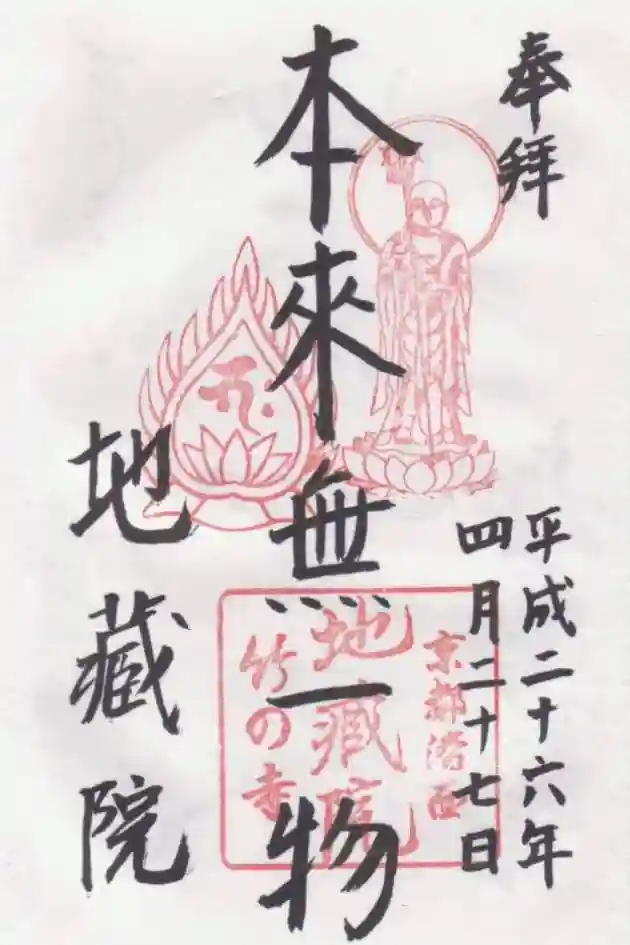 奉拝
平成二十六年
四月二十七日
本來無一物
地蔵院
京都洛西
地蔵院
竹の寺